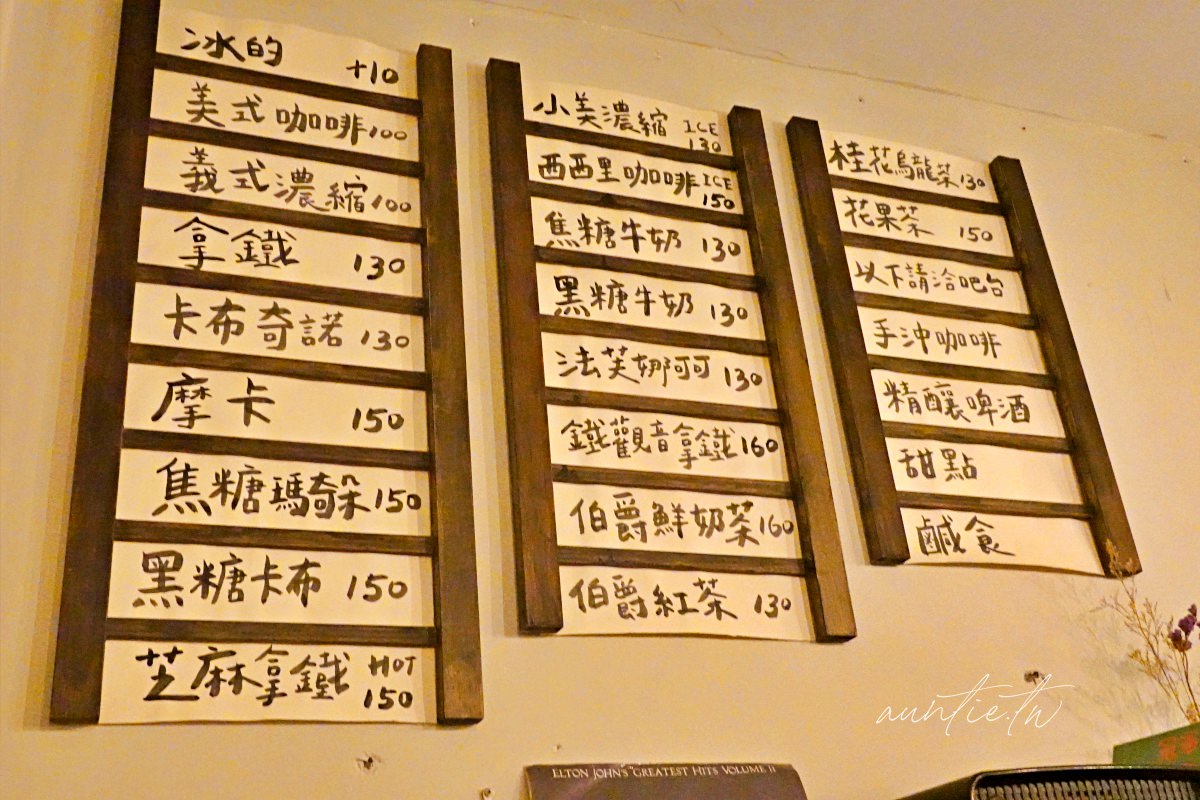 冰的 +10
美式咖啡100
義式濃縮100
拿鐵 130
卡布奇諾 130
摩卡 150
焦糖瑪奇朵150
黑糖卡布 150
芝麻拿鐵 HOT 150
小美濃縮 ICE 130
西西里咖啡 ICE 150
焦糖牛奶 130
黑糖牛奶 130
法芙娜可可 130
鐵觀音拿鐵160
伯爵鮮奶茶160
伯爵紅茶 130
桂花烏龍茶130
花果茶 150
以下請洽吧台
手沖咖啡
精釀啤酒
甜點
鹹食
auntie.tw
ELTON JOHN'S GREATEST HITS VOLUME II